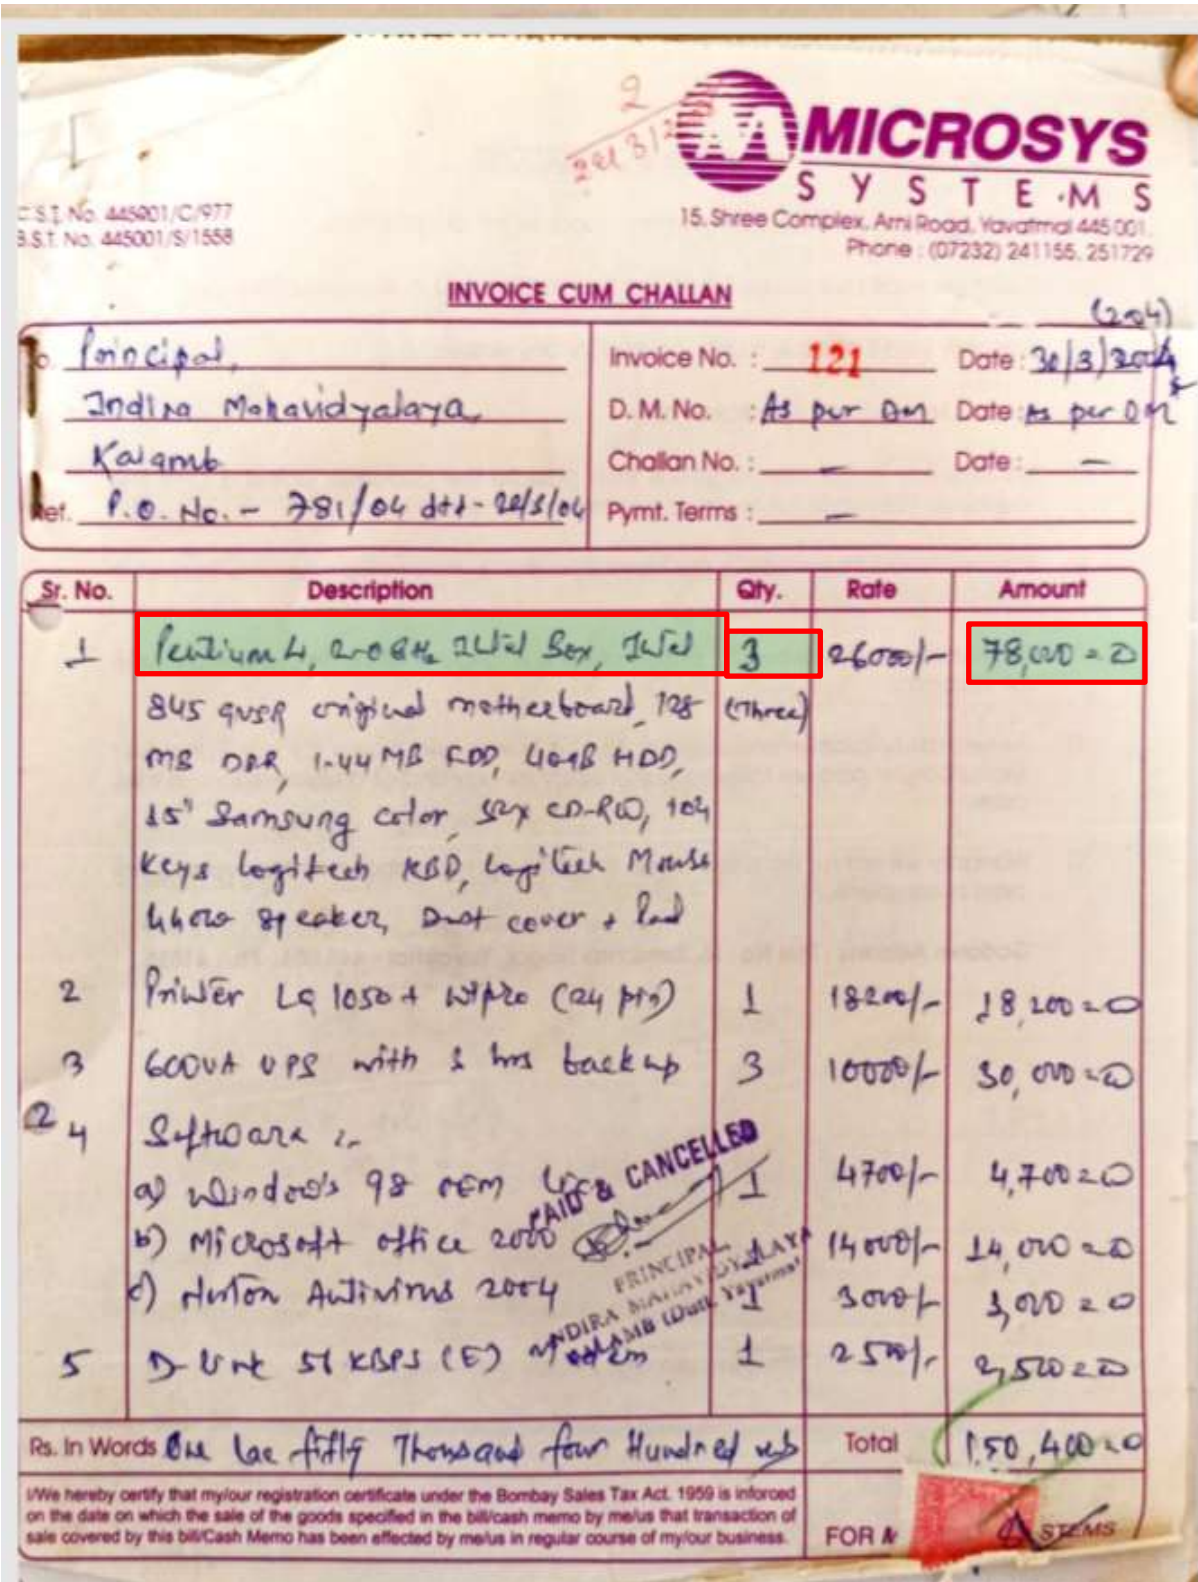 2
MICROSYS
SYSTEMS
C.S.T. No. 445001/C/977
B.S.T. No. 445001/S/1558
15, Shree Complex, Arni Road, Yavatmal 445 001.
Phone : (07232) 241155, 251729
INVOICE CUM CHALLAN
(204)
To Principal, Invoice No. : 121 Date : 30/3/2004
Indira Mahavidyalaya, D. M. No. : As per DM Date : As per DM
Kalamb Challan No. : — Date : —
Ref. P.O. No. - 781/04 dtd - /04 Pymt. Terms : —
Sr. No. Description Qty. Rate Amount
1 Pentium 4, 2.0 GHz Intel Box, Intel 3 26000/- 78,000=0
845 original motherboard, 128 (Three)
MB DDR, 1.44 MB FDD, 40GB HDD,
15" Samsung color, 52x CD-RW, 104
Keys Logitech KBD, Logitech Mouse
speaker, Dust cover + Pad
2 Printer LQ 1050+ Wipro (24 pin) 1 18200/- 18,200=0
3 600VA UPS with 1 hrs backup 3 10000/- 30,000=0
2 4 Software :-
a) Window's 98 OEM 1 4700/- 4,700=0
b) Microsoft office 2000 1 14000/- 14,000=0
c) Norton Antivirus 2004 1 3000/- 3,000=0
5 D-Link 56 KBPS (E) Modem 1 2500/- 2,500=0
PAID & CANCELLED
PRINCIPAL
INDIRA MAHAVIDYALAYA
KALAMB (Dist. Yavatmal)
Rs. In Words One lac fifty Thousand four Hundred Total 1,50,400=0
I/We hereby certify that my/our registration certificate under the Bombay Sales Tax Act. 1959 is inforced
on the date on which the sale of the goods specified in the bill/cash memo by me/us that transaction of
sale covered by this bill/Cash Memo has been effected by me/us in regular course of my/our business.
FOR M STEMS